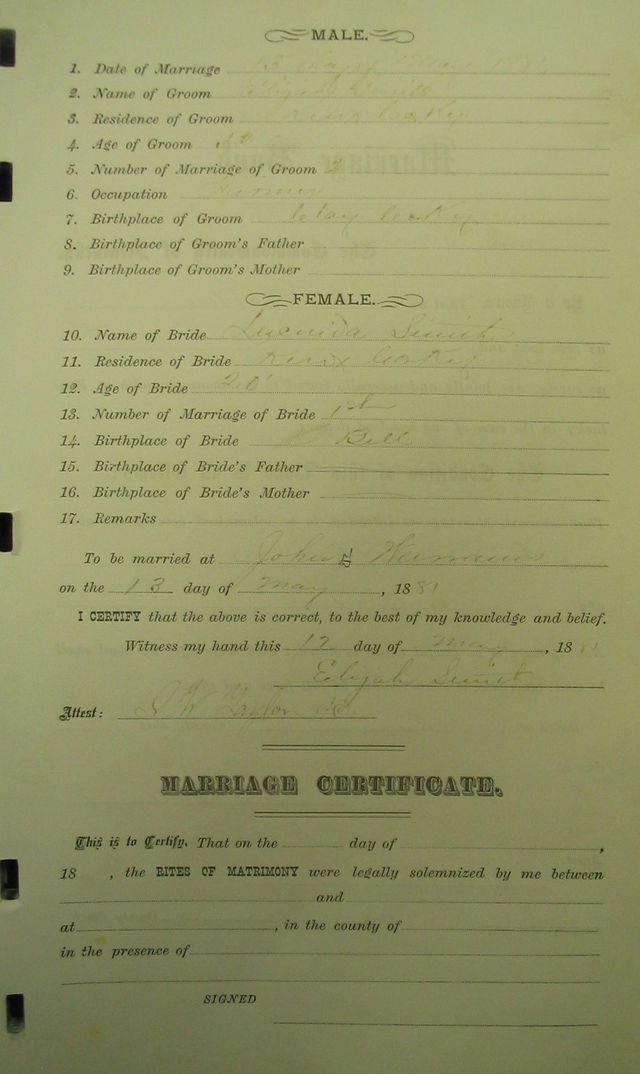 MALE.
1. Date of Marriage 13 day of May 1881
2. Name of Groom Elijah Smith
3. Residence of Groom Knox Co Ky
4. Age of Groom
5. Number of Marriage of Groom 2
6. Occupation Farmer
7. Birthplace of Groom Clay Co Ky
8. Birthplace of Groom's Father
9. Birthplace of Groom's Mother
FEMALE.
10. Name of Bride Lucinda Smith
11. Residence of Bride Knox Co Ky
12. Age of Bride 20
13. Number of Marriage of Bride 1st
14. Birthplace of Bride Bell
15. Birthplace of Bride's Father
16. Birthplace of Bride's Mother
17. Remarks
To be married at John
on the 13 day of May, 1881
I CERTIFY that the above is correct, to the best of my knowledge and belief.
Witness my hand this 12 day of May, 1881
Elijah Smith
Attest:
MARRIAGE CERTIFICATE.
This is to Certify, That on the day of ,
18 , the RITES OF MATRIMONY were legally solemnized by me between
and
at , in the county of
in the presence of
SIGNED